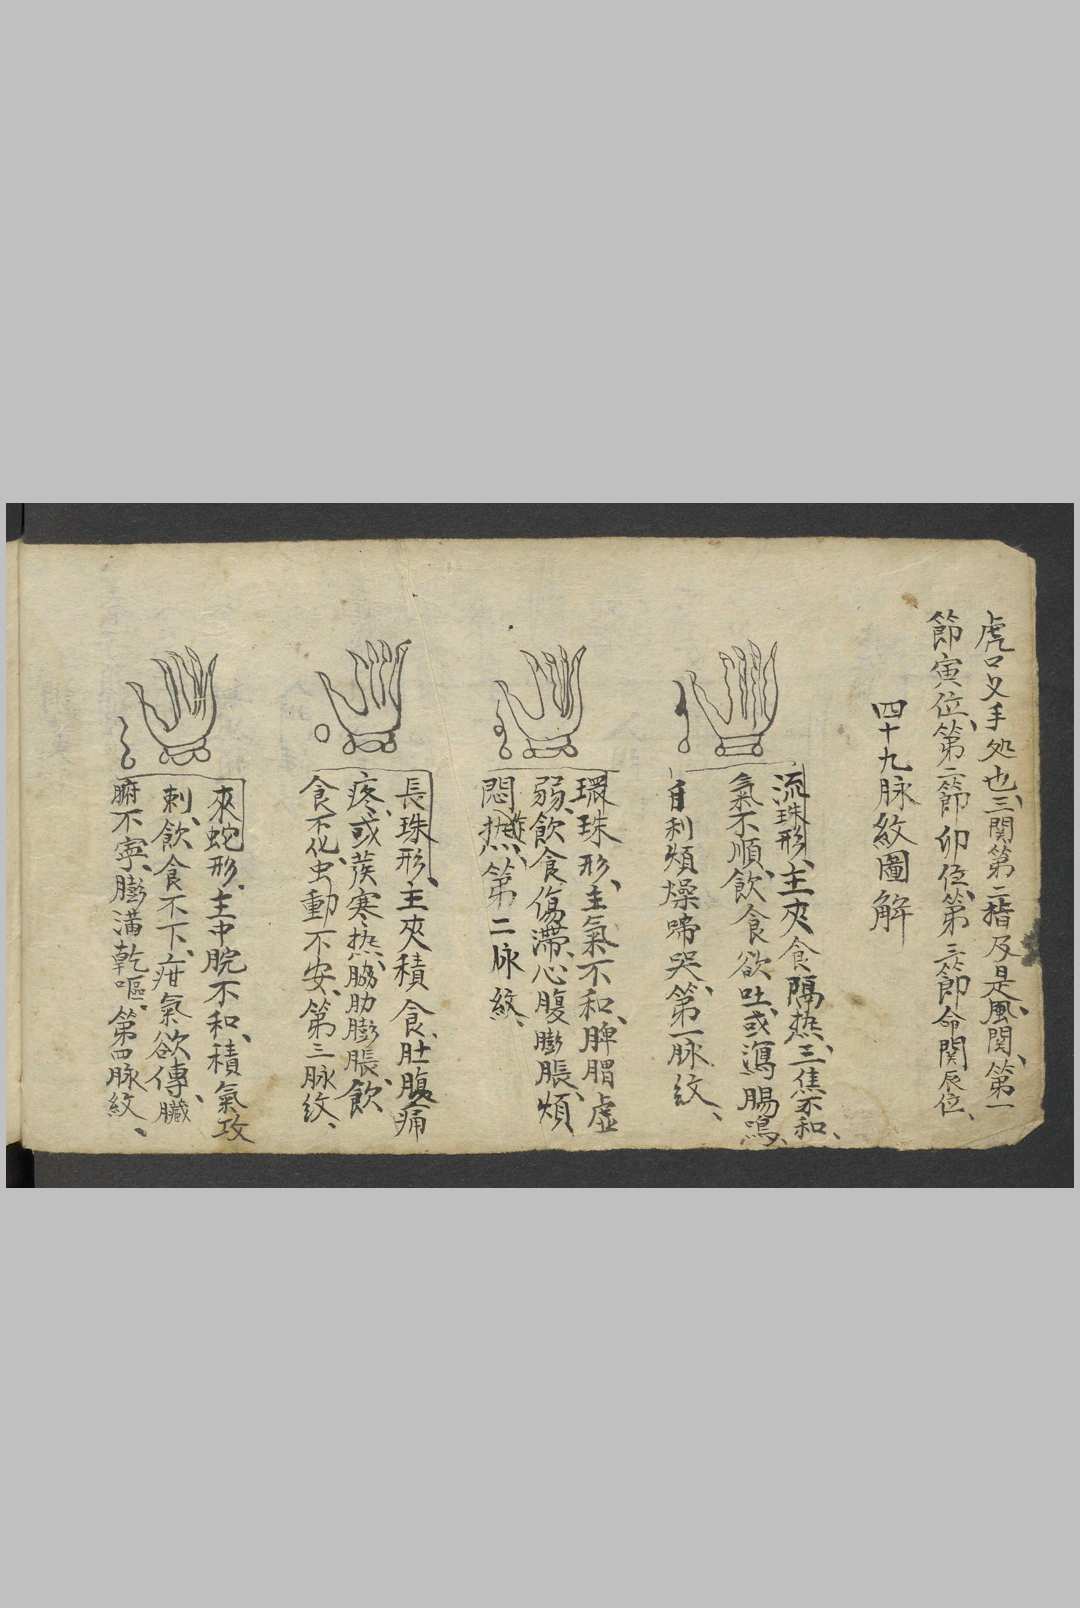 虎口乂手処也、三関第二指及是風関、第一
節寅位、第二節卯位、第三節命関辰位、
四十九脉紋圖解
流珠形、主夾食隔热、三焦不和、
氣不順、飲食欲吐、或瀉腸鳴、
自利煩燥啼哭、第一脉紋、
環珠形、主氣不和、脾胃虚
弱、飲食傷滯、心腹膨脹、煩
悶热、第二脉紋、
長珠形、主夾積食、肚腹痛
疼、或發寒热、脇肋膨脹、飲
食不化、虫動不安、第三脉紋、
來蛇形、主中脘不和、積氣攻
刺、飲食不下、疳氣欲傳、臟
腑不寧、膨滿乾嘔、第四脉紋、